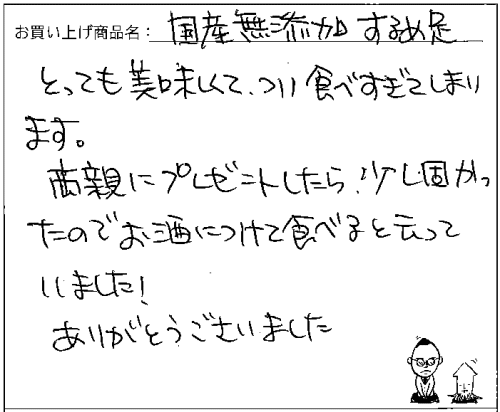 お買い上げ商品名： 国産無添加 するめ足
とっても美味しくて、つい食べすぎてしまり
ます。
両親にプレゼントしたら、少し固かっ
たのでお酒につけて食べると云って
いました！
ありがとうございました